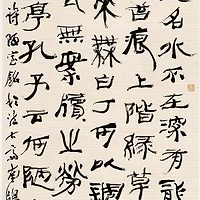 名水不在深有龍
苔痕上階綠草
來無白丁可以調
無案牘之勞
亭孔子云何陋
陋室銘